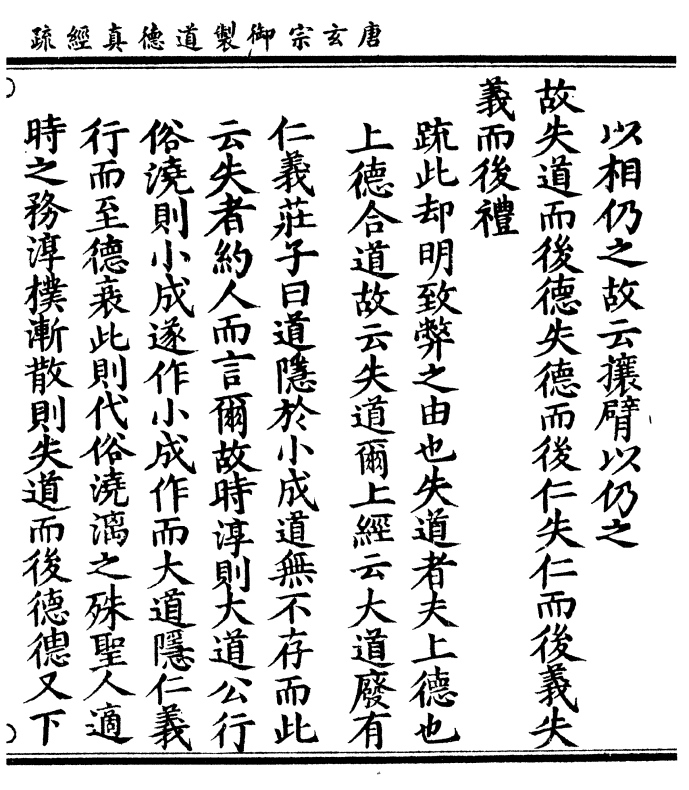 唐玄宗御製道德真經疏
以相仍之故云攘臂以仍之
故失道而後德失德而後仁失仁而後義失
義而後禮
疏此却明致弊之由也失道者夫上德也
上德合道故云失道爾上經云大道廢有
仁義莊子曰道隱於小成道無不存而此
云失者約人而言爾故時淳則大道公行
俗澆則小成遂作小成作而大道隱仁義
行而至德衰此則代俗澆漓之殊聖人適
時之務淳樸漸散則失道而後德德又下